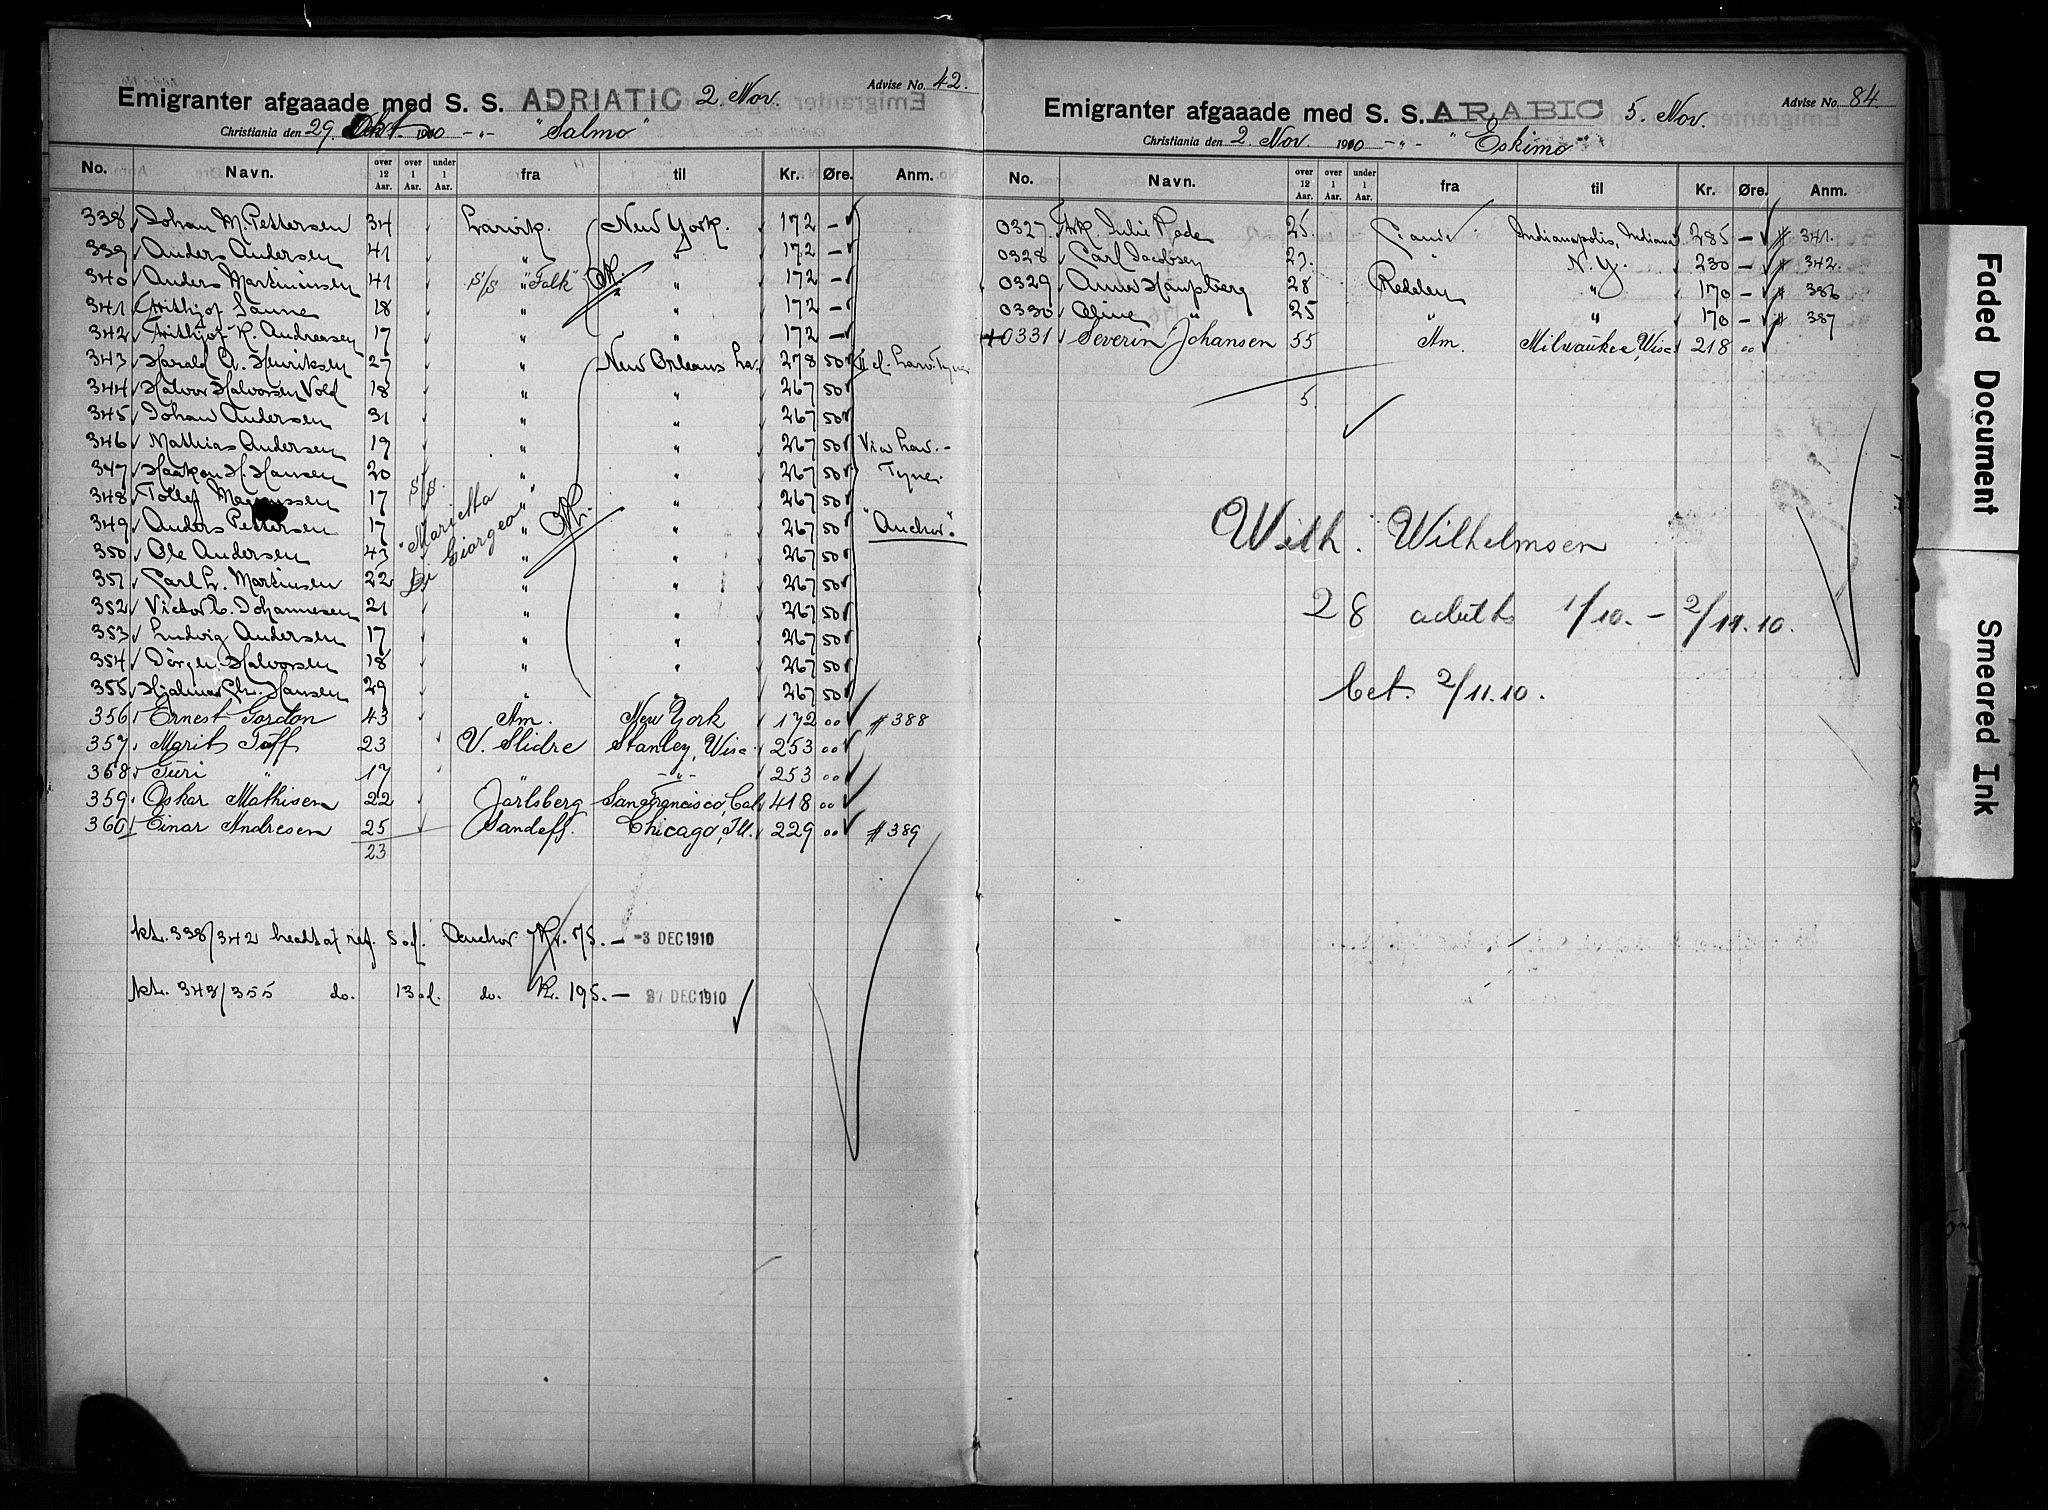 Advise No. 42.
Emigranter afgaaade med S. S. ADRIATIC 2. Nov.
Christiania den 29. Okt. 1910 -"- "Salmo"
No. Navn. over 12 Aar. over 1 Aar. under 1 Aar. fra til Kr. Øre. Anm.
338 Johan M. Pettersen 34 Larvik. New York. 172 -
339 Anders Andersen 41 " " 172 -
340 Anders Martininsen 41 S/S "Falk" " 172 -
341 Frithjof Saune 18 " " 172 -
342 Frithjof K. Andreasen 17 " " 172 -
343 Harald A. Henriksen 27 " New Orleans La. 278 50
344 Halvor Halvorsen Vold 18 " " 267 50
345 Johan Andersen 31 " " 267 50
346 Mathias Andersen 19 " " 267 50 Via Lar.-
347 Haakon H. Hansen 20 S/S. " " 267 50 Tyne.
348 Tollef Magnussen 17 "Marietta " " 267 50
349 Anders Pettersen 17 Giorgeo " " 267 50 "Anchor".
350 Ole Andersen 43 " " 267 50
351 Carl L. Martinsen 22 " " 267 50
352 Victor E. Johannesen 21 " " 267 50
353 Ludvig Andersen 17 " " 267 50
354 Jørgen Halvorsen 18 " " 267 50
355 Hjalmar Chr. Hansen 29 " " 267 50
356 Ernest Gordon 43 Am. New York 172 00 # 388
357 Marit Tøff 23 V. Slidre Stanley, Wisc. 253 00
358 Turi " 17 " -"- 253 00
359 Oskar Mathisen 22 Jarlsberg San Francisco, Cal. 418 00
360 Einar Andresen 25 Sandeff. Chicago, Ill. 229 00 # 389
23
kt. 338/342 ref. 5 Anchor Kr. 75. - -3 DEC 1910
kt. 343/355 do. 13 do. Kr. 195. - 27 DEC 1910
Advise No. 84
Emigranter afgaaade med S. S. ARABIC 5. Nov.
Christiania den 2. Nov. 1910 -"- "Eskimo"
No. Navn. over 12 Aar. over 1 Aar. under 1 Aar. fra til Kr. Øre. Anm.
0327 Frk. Julie Rede 25. Indianapolis, Indiana 285 - # 341.
0328 Carl Jacobsen 27. " N.Y. 230 - # 342.
0329 Anna Haugberg 28 " 170 - # 386
0330 Oline " 25 " " 170 - # 387
0331 Severin Johansen 55 Am. Milwaukee, Wisc 218 00
5
Wilh. Wilhelmsen
28 adults 1/10. - 2/11.10.
bet. 2/11.10.
Faded Document
Smeared Ink